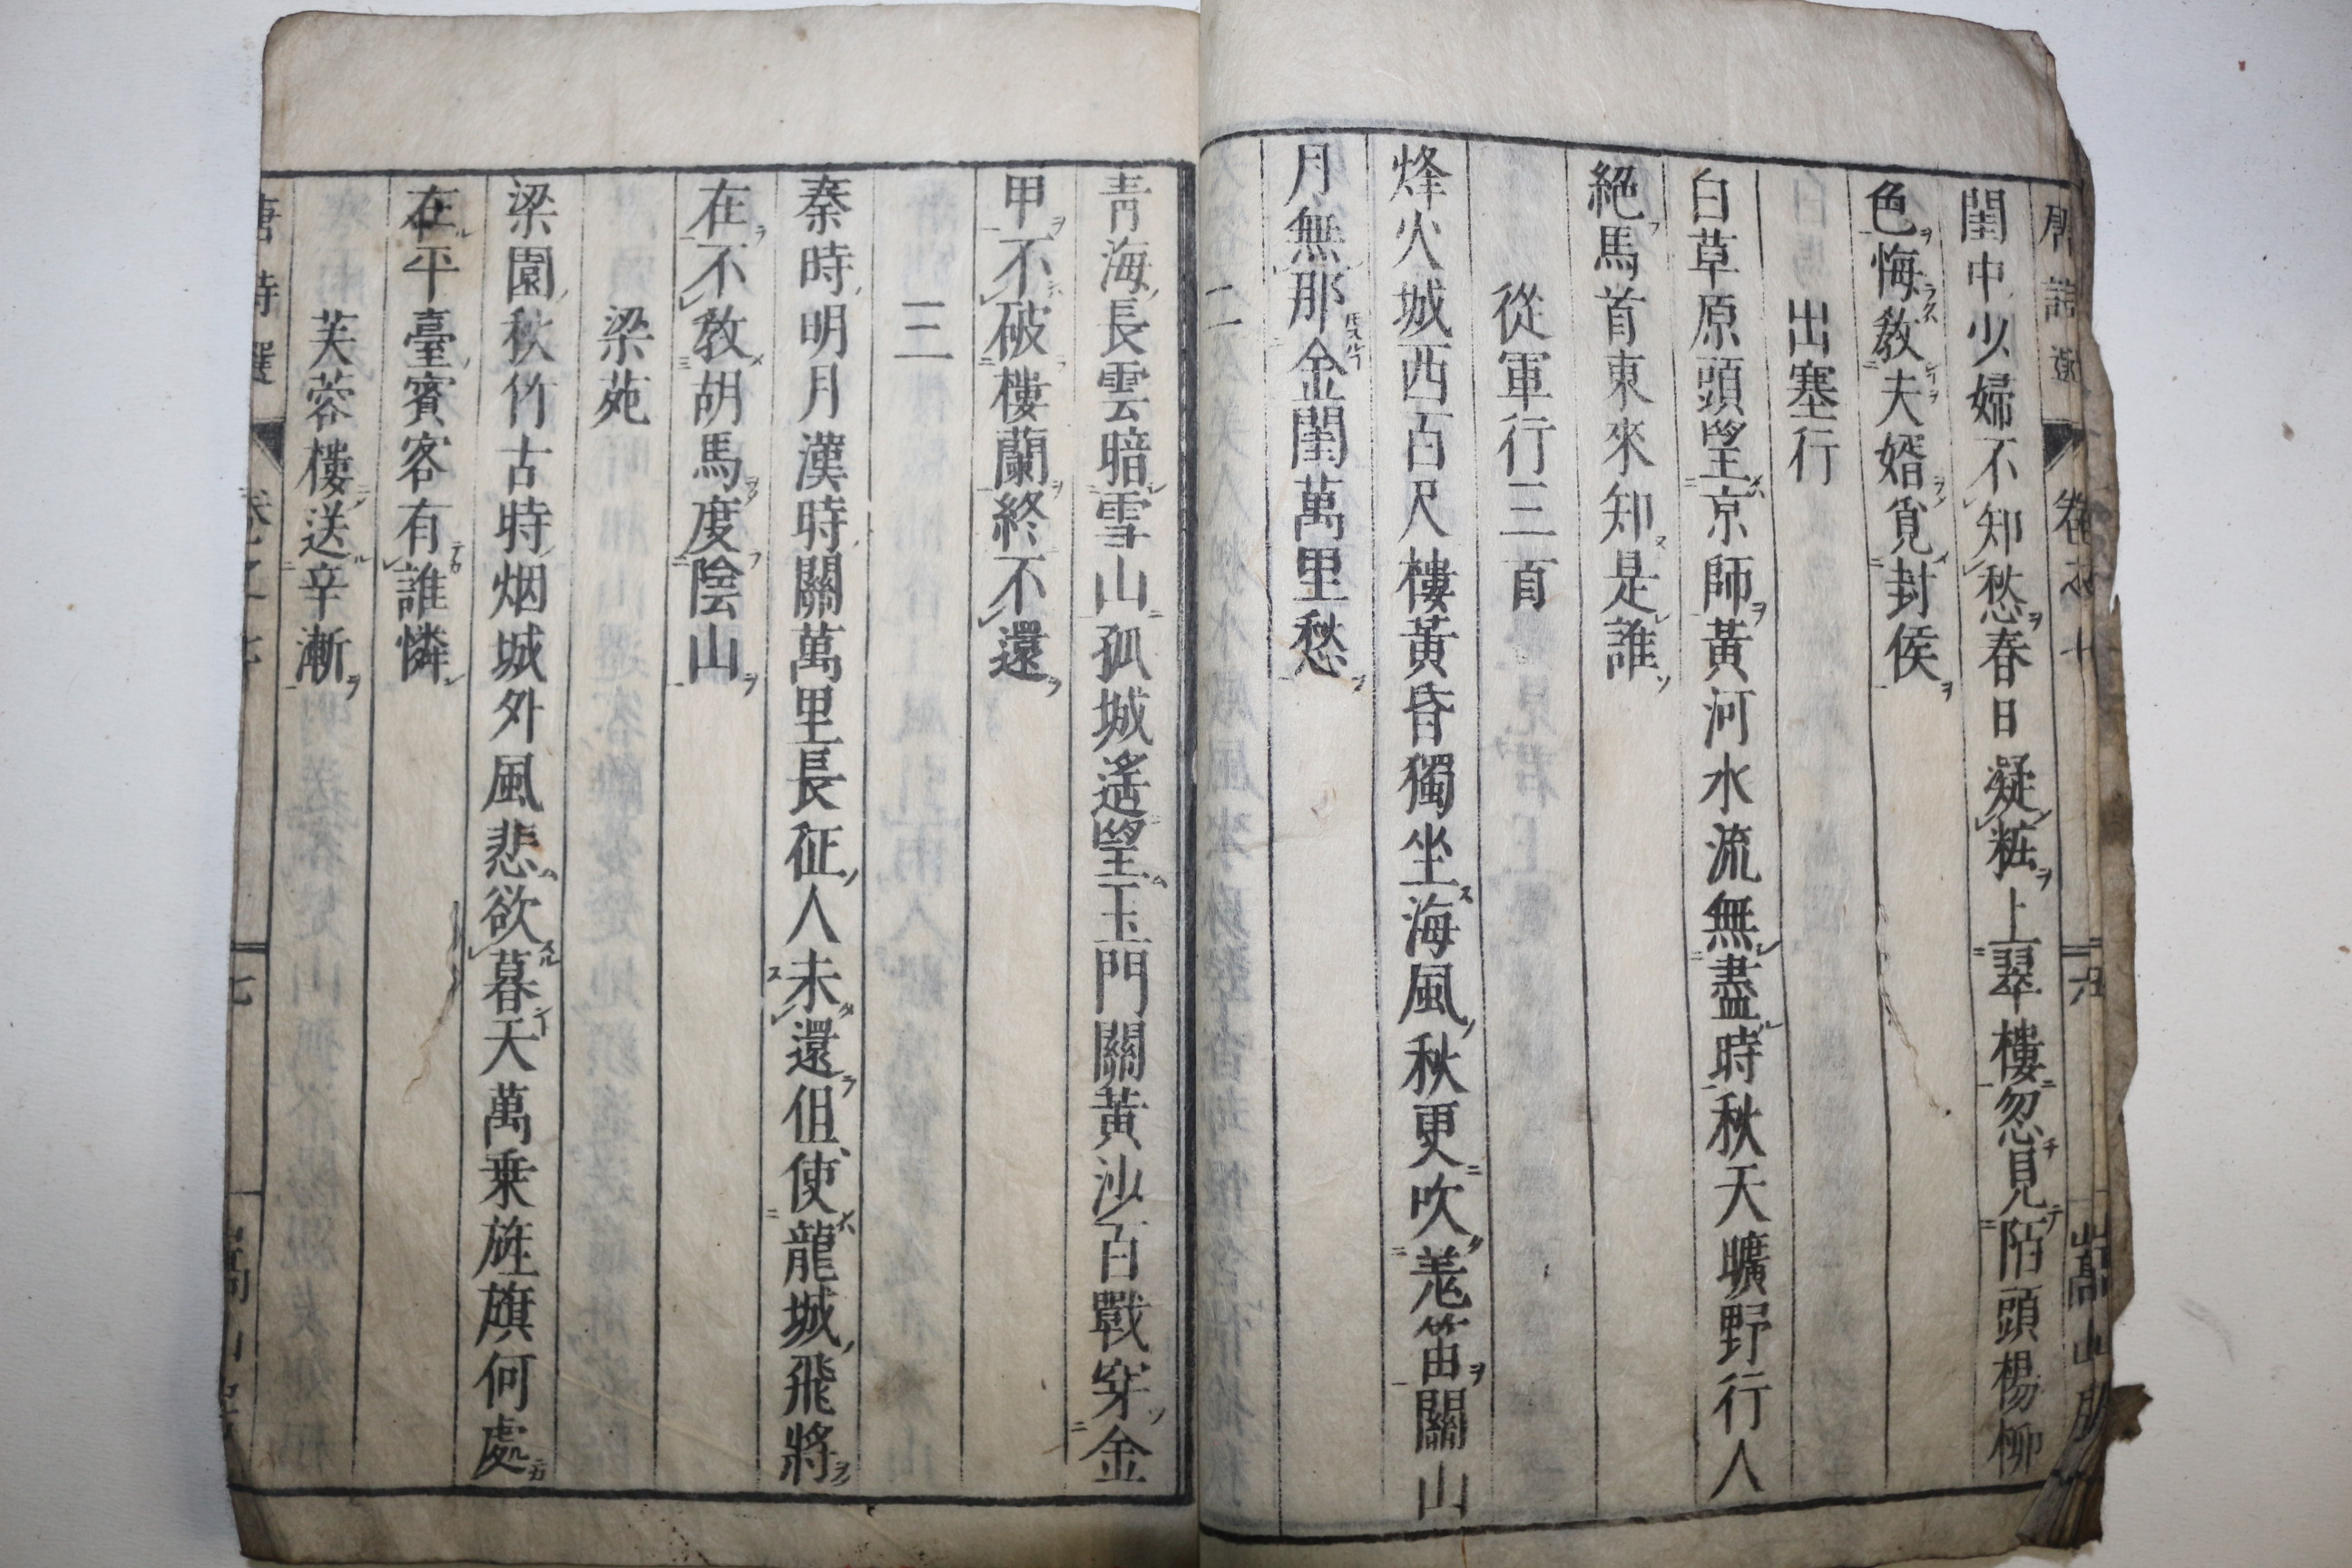 唐詩選 卷之七 六 嵩山房
閨中少婦不知愁春日凝粧上翠樓忽見陌頭楊柳
色悔敎夫婿覓封侯
出塞行
白草原頭望京師黃河水流無盡時秋天曠野行人
絕馬首東來知是誰
從軍行三首
烽火城西百尺樓黃昏獨坐海風秋更吹羗笛關山
月無那金閨萬里愁
二
靑海長雲暗雪山孤城遙望玉門關黃沙百戰穿金
甲不破樓蘭終不還
三
秦時明月漢時關萬里長征人未還但使龍城飛將
在不敎胡馬度陰山
梁苑
梁園秋竹古時烟城外風悲欲暮天萬乗旌旗何處
在平臺賓客有誰憐
芙蓉樓送辛漸
唐詩選 卷之七 七 嵩山房